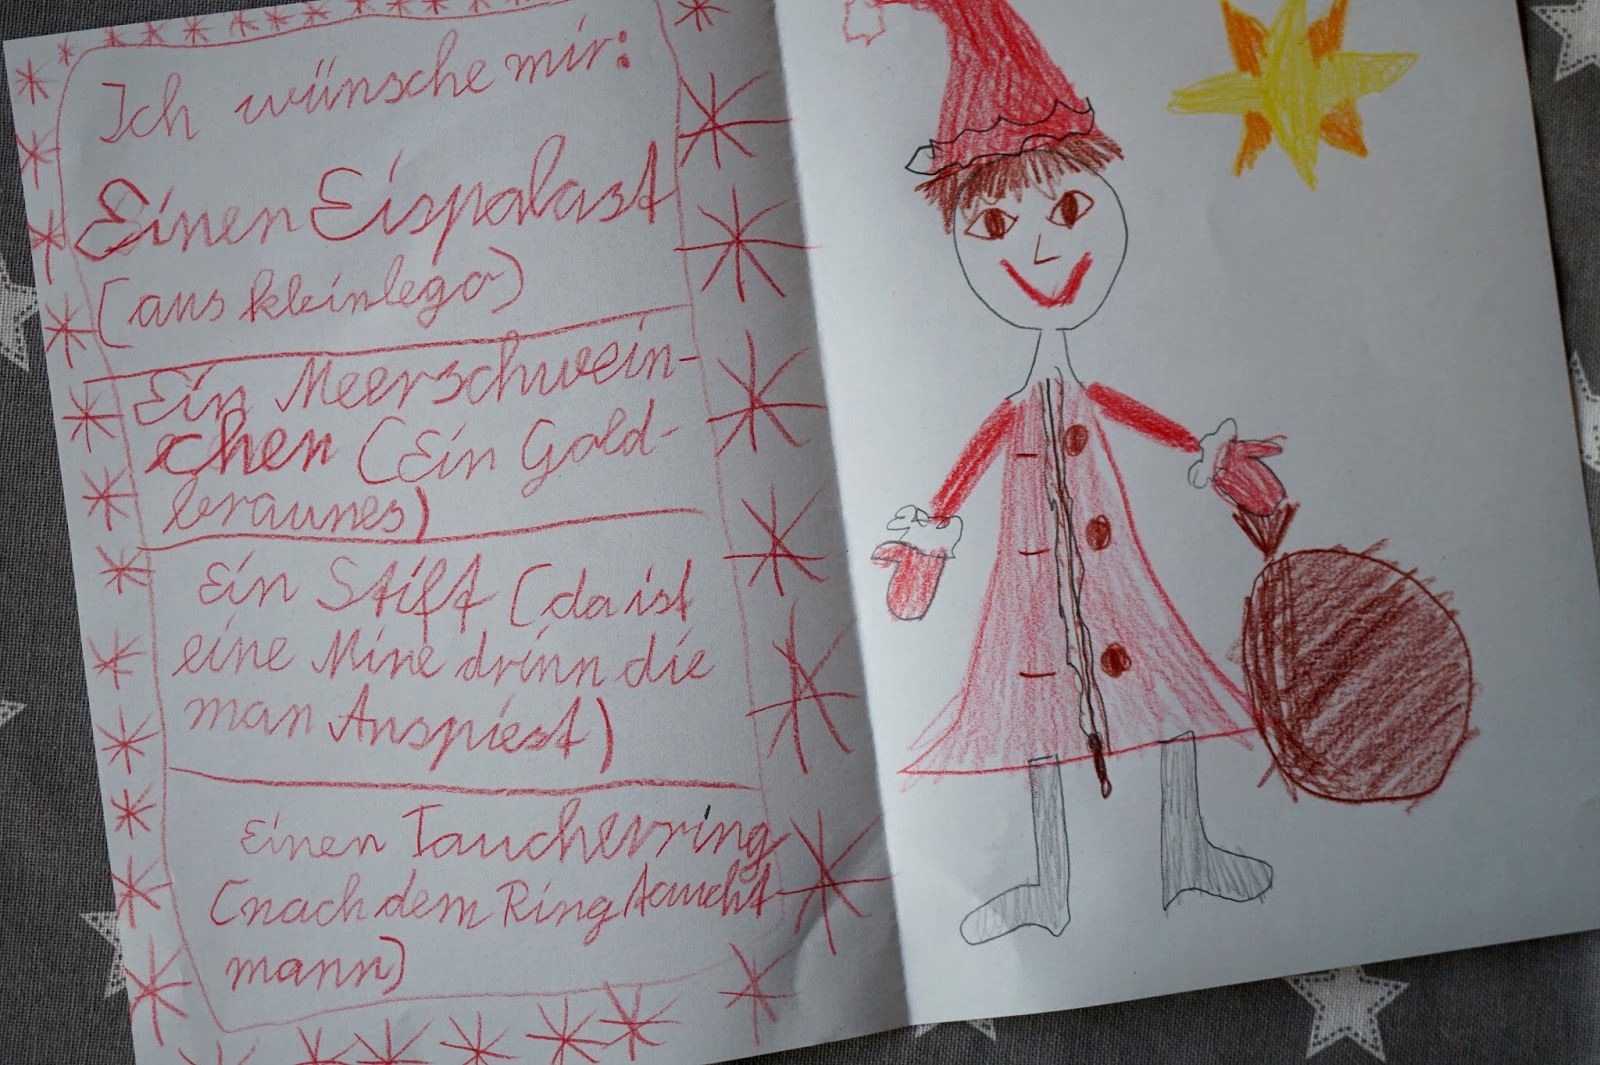 Ich wünsche mir:
Einen Eispalast
(aus kleinlego)
Ein Meerschwein-
chen (Ein Gold-
braunes)
Ein Stift (da ist
eine Mine drinn die
man Anspiest)
einen Taucherring
(nach dem Ring taucht
mann)